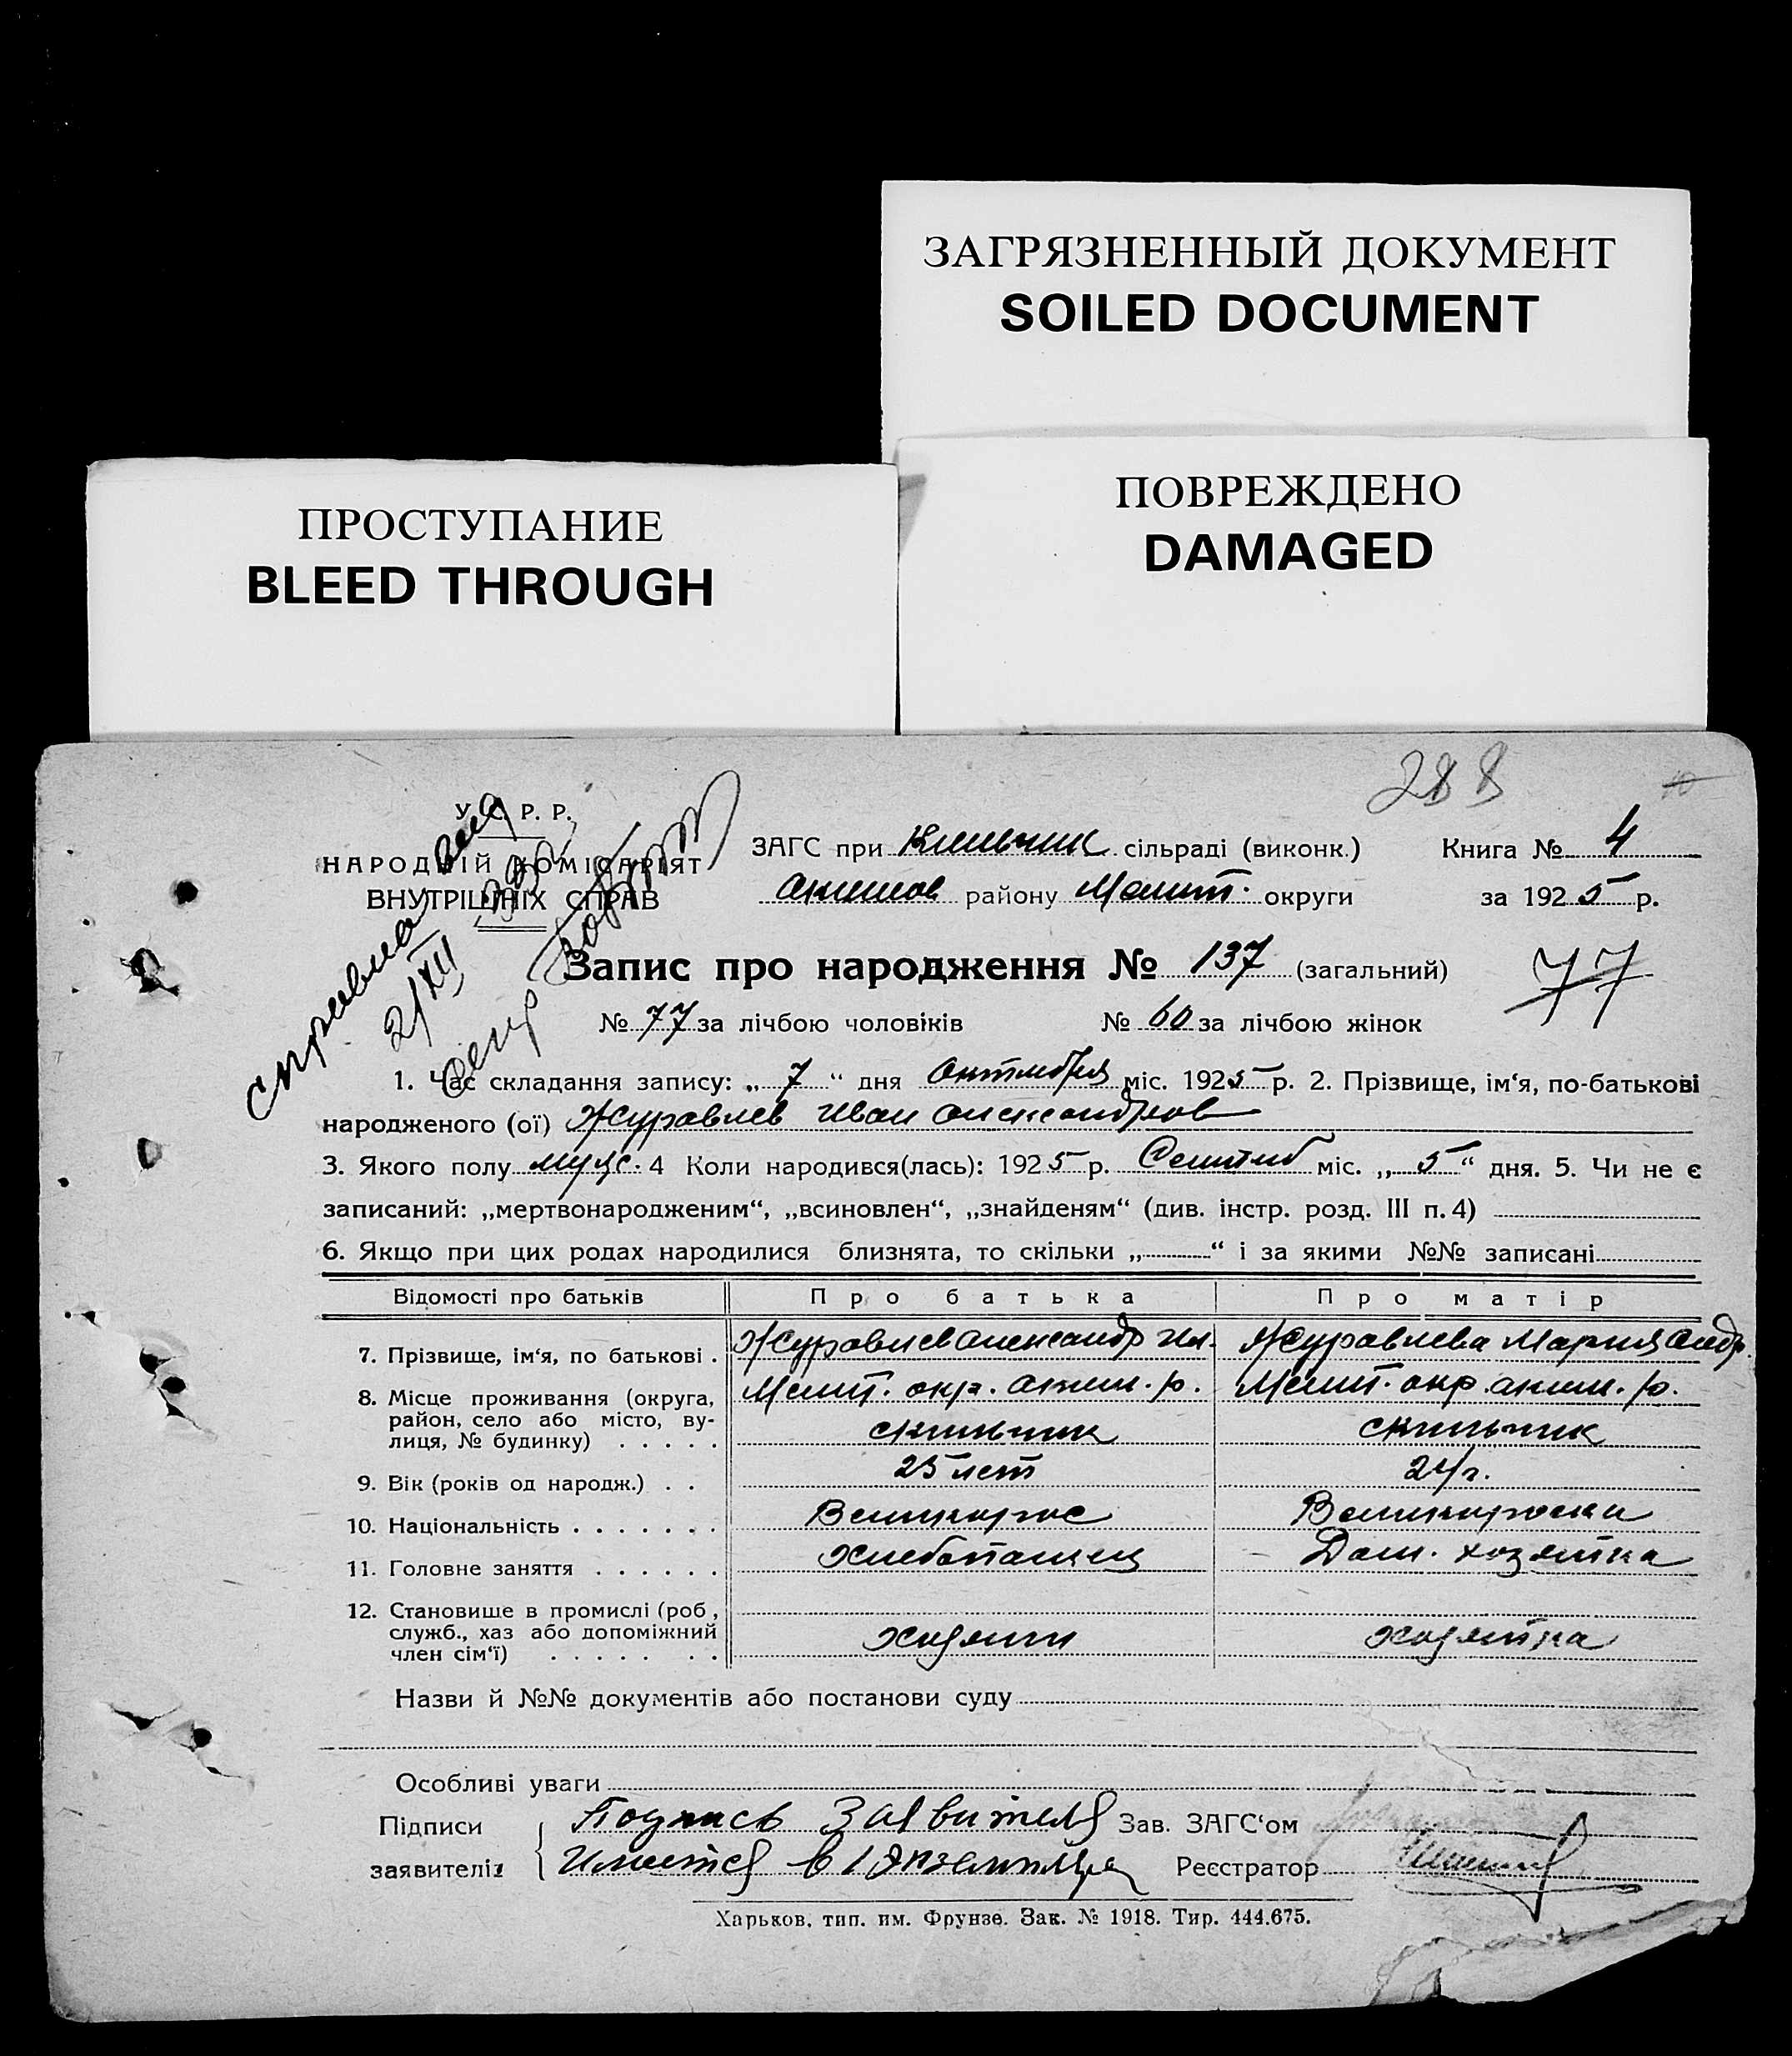 ЗАГРЯЗНЕННЫЙ ДОКУМЕНТ
SOILED DOCUMENT
ПРОСТУПАНИЕ
BLEED THROUGH
ПОВРЕЖДЕНО
DAMAGED
288
У. С. Р. Р.
НАРОДНІЙ КОМІСАРІЯТ
ВНУТРІШНІХ СПРАВ
21/XII
ЗАГС при Кильчик сільраді (виконк.) Книга № 4
Акимов району Мелит. округи за 1925 р.
Запис про народження № 137 (загальний)
77
№ 77 за лічбою чоловіків № 60 за лічбою жінок
1. Час складання запису: „ 7 “ дня Октября міс. 1925 р. 2. Прізвище, ім‘я, по-батькові
народженого (ої) Журавлев Иван Александров
3. Якого полу муж. 4 Коли народився(лась): 1925 р. Сентяб міс. „ 5 “ дня. 5. Чи не є
записаний: „мертвонародженим“, „всиновлен“, „знайденям“ (див. інстр. розд. III п. 4)
6. Якщо при цих родах народилися близнята, то скільки „ “ і за якими №№ записані
Відомості про батьків Про батька Про матір
7. Прізвище, ім‘я, по батькові . Журавлев Александр Ил. Журавлева Мария Андр.
8. Місце проживання (округа, Мелит. окр. Аким. р. Мелит. окр. Аким. р.
район, село або місто, ву-
лиця, № будинку) . . . . . с Кильчик с Кильчик
9. Вік (років од народж.) . . 25 лет 24 г.
10. Національність . . . . . . . Великорос Великороска
11. Головне заняття . . . . . . Хлебопашец Дом. хозяйка
12. Становище в промислі (роб ,
служб., хаз або допоміжний
член сім‘ї) . . . . . . . Хозяин хозяйка
Назви й №№ документів або постанови суду
Особливі уваги
Підписи Подпись Заявителя Зав. ЗАГС‘ом
заявителів Имеится в 1 экземпляре Реєстратор
Харьков, тип. им. Фрунзе. Зак. № 1918. Тир. 444.675.